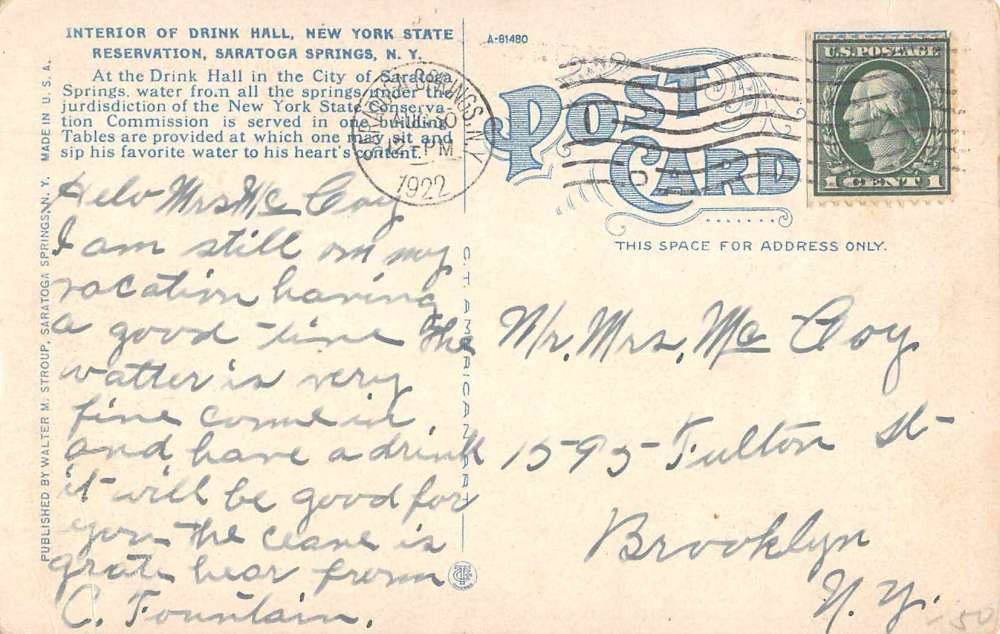 INTERIOR OF DRINK HALL, NEW YORK STATE
RESERVATION, SARATOGA SPRINGS, N. Y.
At the Drink Hall in the City of Saratoga
Springs, water from all the springs under the
jurdisdiction of the New York State Conserva-
tion Commission is served in one building
Tables are provided at which one may sit and
sip his favorite water to his heart's content.
Helo Mrs Mc Coy
I am still on my
vacation having
a good time the
watter is very
fine come in
and have a drink
it will be good for
you the ceane is
grate hear from
C. Fountain.
PUBLISHED BY WALTER M. STROUP, SARATOGA SPRINGS, N. Y. MADE IN U. S. A.
C. T. AMERICAN ART
A-81480
POST
CARD
THIS SPACE FOR ADDRESS ONLY.
SPRINGS, N.Y.
12 PM
1922
U.S. POSTAGE
1 CENT 1
Mr. Mrs. Mc Coy
1595 Fulton St
Brooklyn
N. Y.
50